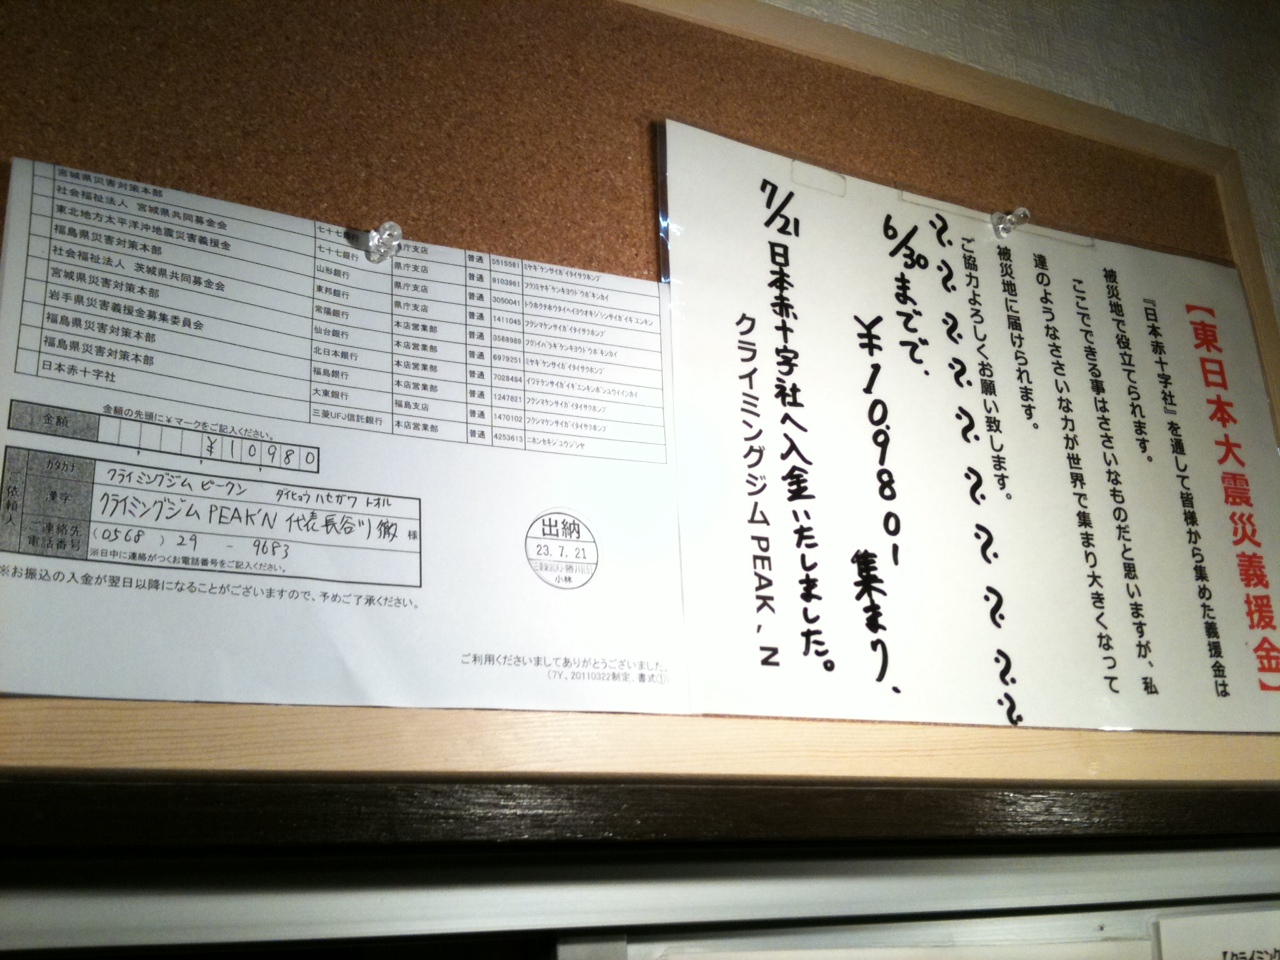 宮城県災害対策本部
社会福祉法人 宮城県共同募金会 七十七銀行 県庁支店 普通 5515581 ミヤギケンサイガイタイサクホンブ
東北地方太平洋沖地震災害義援金 七十七銀行 県庁支店 普通 9103961 フク)ミヤギケンキヨウドウボキンカイ
福島県災害対策本部 山形銀行 県庁支店 普通 3050041 トウホクチホウタイヘイヨウオキジシンサイガイギエンキン
社会福祉法人 茨城県共同募金会 東邦銀行 県庁支店 普通 1411045 フクシマケンサイガイタイサクホンブ
宮城県災害対策本部 常陽銀行 本店営業部 普通 3568989 フク)イバラギケンキヨウドウボキンカイ
岩手県災害義援金募集委員会 仙台銀行 本店営業部 普通 6979251 ミヤギケンサイガイタイサクホンブ
福島県災害対策本部 北日本銀行 本店営業部 普通 7028484 イワテケンサイガイギエンキンボシユウイインカイ
福島県災害対策本部 福島銀行 本店営業部 普通 1247821 フクシマケンサイガイタイサクホンブ
日本赤十字社 大東銀行 福島支店 普通 1470102 フクシマケンサイガイタイサクホンブ
三菱UFJ信託銀行 本店営業部 普通 4253613 ニホンセキジユウジシヤ
金額の先頭に¥マークをご記入ください。
金額 ¥10,980
依頼人
カタカナ クライミングジム ピークン ダイヒョウ ハセガワ トオル
漢字 クライミングジム PEAK'N 代表 長谷川 徹 様
ご連絡先電話番号 (0568) 29 - 9683
※日中に連絡がつくお電話番号をご記入ください。
※お振込の入金が翌日以降になることがございますので、予めご了承ください。
出納
23.7.21
小林
ご利用くださいましてありがとうございました。
(7Y、20110322制定、書式①)
【東日本大震災義援金】
『日本赤十字社』を通して皆様から集めた義援金は
被災地で役立てられます。
ここでできる事はささいなものだと思いますが、私
達のようなささいな力が世界で集まり大きくなって
被災地に届けられます。
ご協力よろしくお願い致します。
6/30までで、
¥10,980-集まり、
7/21日本赤十字社へ入金いたしました。
クライミングジムPEAK'N
【クライミング